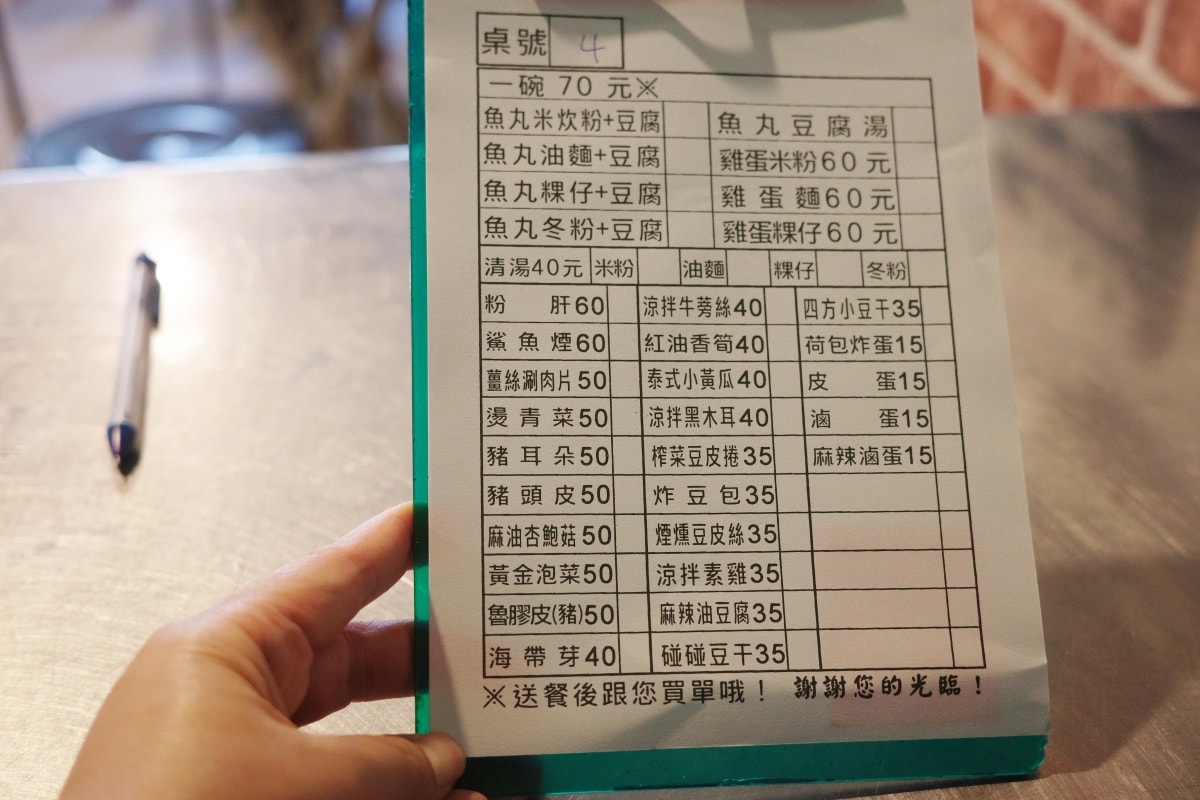 桌號 4
一碗 70 元※
魚丸米炊粉+豆腐 魚丸豆腐湯
魚丸油麵+豆腐 雞蛋米粉60元
魚丸粿仔+豆腐 雞蛋麵60元
魚丸冬粉+豆腐 雞蛋粿仔60元
清湯40元 米粉 油麵 粿仔 冬粉
粉肝60 涼拌牛蒡絲40 四方小豆干35
鯊魚煙60 紅油香筍40 荷包炸蛋15
薑絲涮肉片50 泰式小黃瓜40 皮蛋15
燙青菜50 涼拌黑木耳40 滷蛋15
豬耳朵50 榨菜豆皮捲35 麻辣滷蛋15
豬頭皮50 炸豆包35
麻油杏鮑菇50 煙燻豆皮絲35
黃金泡菜50 涼拌素雞35
魯膠皮(豬)50 麻辣油豆腐35
海帶芽40 碰碰豆干35
※送餐後跟您買單哦！ 謝謝您的光臨！